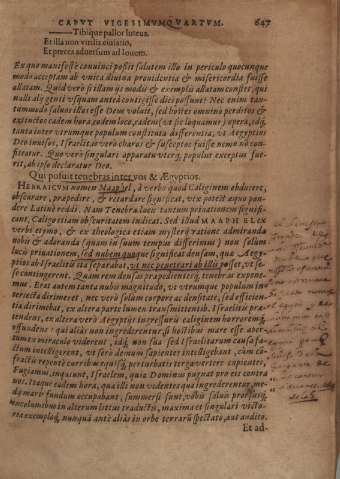 CAPVT VIGESIMVMQVARTVM. 647
Tibique pallor luteus,
Et illa non virilis eiulatio,
Et preces aduersum ad Iouem.
Ex quo manifestè conuinci possit salutem illo in periculo quocunque
modo acceptam ab vnica diuina prouidentia & misericordia fuisse
allatam. Quid verò si illam ijs modis & exemplis allatam constet, qui
nulli alij genti vsquam anteà contigisse dici possunt? Nec enim tan-
tummodo saluos illos esse Deus voluit, sed hostes omnino perditos &
extinctos eadem hora, eodem loco, eadem
tanta inter vtrumque populum constituta differentia, vt Aegyptios
Deo inuisos, Israelitas verò charos & susceptos fuisse nemo nō con-
fiteatur. Quo verò singulari apparatu vterq. populus exceptus fue-
rit, ab ipso declaratur Deo.
Qui posuit tenebras inter vos & Ægyptios.
HEBRAICVM nomen Maaphel, à verbo quod Caliginem obducere,
obscurare, præpedire, & retardare significat, vix potest aliquo pon-
dere Latinè reddi. Nam Tenebra lucis tantum priuationem signifi-
cant, Caligo etiam obscuritatem indicat. Sed illud MAAPHEL ex
verbi etymo, & ex theologica etiam mysterij ratione admiranda
nobis & adoranda (quam in suum tempus differimus) non solùm
lucis priuationem, sed nubem quoque significat densam, quæ Aegy-
ptios ab Israelitis ita separabat, vt nec penetrari ab illis posset, vt se-
se contingerent. Quam rem densæ præpedientisq. tenebræ exponi-
mus. Erat autem tanta nubis magnitudo, vt vtrumque populum in-
teriecta dirimeret, nec verò solùm corpore ac densitate, sed efficien-
tia dirimebat, ex altera parte lumen transmittens Israelitis præ-
tendens, ex altera verò Aegyptijs ingressuris caliginem horrorem
effundens: qui aliàs non ingrederentur, si hostibus mare esse aper-
tum ex miraculo viderent, idq. non sua sed Israelitarum causa fa-
ctum intelligerent, vt serò demum sapientes intelligebant, cùm cō-
fractis repentè curribus equisq. perturbatis terga vertere cupientes,
Fugiamus, inquiunt, Israelem, quia Dominus pugnat pro eis contra
nos. Itaque eadem hora, qua illi non videntes quà ingrederentur, me-
dij maris fundum occupabant, summersi sunt, vobis saluis prorsusq.
incolumibus in alterum littus traductis, maxima et singulari victo-
riæ exemploq. nunquā antè aliàs in orbe terrarū spectato, aut audito.
Et ad-